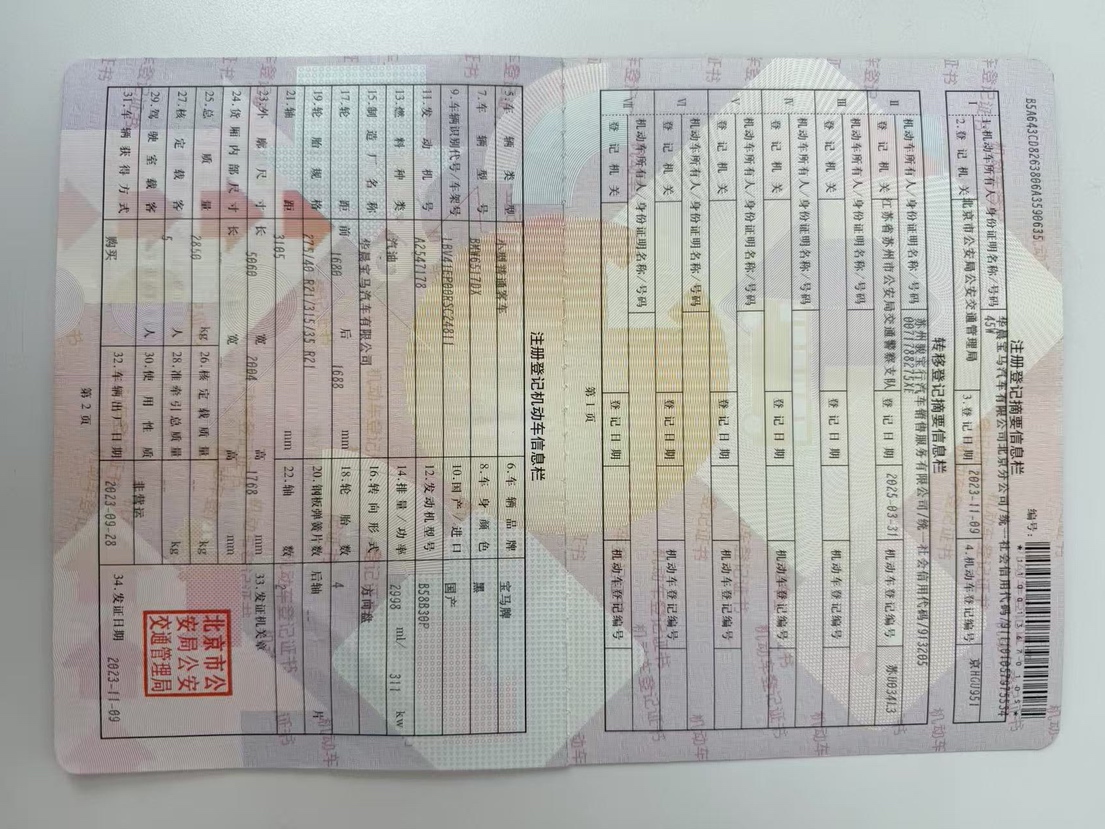 B5A643CD8263806A3590635
编号:
注册登记摘要信息栏
I
1.机动车所有人/身份证明名称/号码
华晨宝马汽车有限公司北京分公司/统一社会信用代码/
2.登记机关
北京市公安局公安交通管理局
3.登记日期
2023-11-09
4.机动车登记编号
京HGU951
转移登记摘要信息栏
II
机动车所有人/身份证明名称/号码
汽车销售服务有限公司/统一社会信用代码/913205
登记机关
江苏省苏州市公安局交通警察支队
登记日期
2025-03-31
机动车登记编号
III
机动车所有人/身份证明名称/号码
登记机关
登记日期
机动车登记编号
IV
机动车所有人/身份证明名称/号码
登记机关
登记日期
机动车登记编号
V
机动车所有人/身份证明名称/号码
登记机关
登记日期
机动车登记编号
VI
机动车所有人/身份证明名称/号码
登记机关
登记日期
机动车登记编号
VII
机动车所有人/身份证明名称/号码
登记机关
登记日期
机动车登记编号
第 1 页
注册登记机动车信息栏
5.车辆类型 小型普通客车 6.车辆品牌 宝马牌
7.车辆型号 8.车身颜色 黑
9.车辆识别代号/车架号 10.国产/进口 国产
11.发动机号 A2547178 12.发动机型号 B58B30P
13.燃料种类 汽油 14.排量/功率 2998 ml/ 311 kw
15.制造厂名称 华晨宝马汽车有限公司 16.转向形式 方向盘
17.轮距 前 1680 后 1688 mm 18.轮胎数 4
19.轮胎规格 275/40 R21/315/35 R21 20.钢板弹簧片数 后轴 片
21.轴距 3105 mm 22.轴数 2
23.外廓尺寸 长 5060 宽 2004 高 1768 mm 33.发证机关章
24.货厢内部尺寸 长 宽 高 mm
25.总质量 2860 kg 26.核定载质量 kg
27.核定载客 5 人 28.准牵引总质量 kg
29.驾驶室载客 人 30.使用性质 非营运
31.车辆获得方式 购买 32.车辆出厂日期 2023-09-28 34.发证日期 2023-11-09
北京市公
安局公安
交通管理局
第 2 页